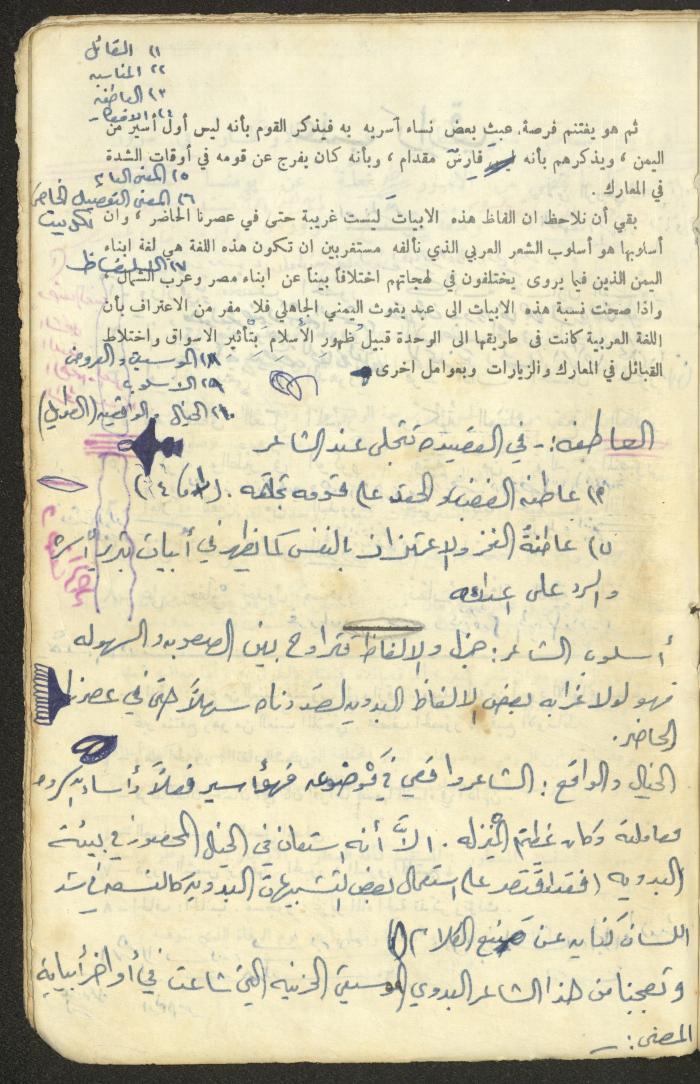 ١) القائل
٢) المناسبه
٣) العاطفه
٤) الافكار
ثم هو يغتنم فرصة عبث بعض نساء آسريه به فيذكر القوم بأنه ليس أول أسير من
اليمن ، ويذكرهم بأنه فارس مقدام ، وبأنه كان يفرج عن قومه في أوقات الشدة
٥) المعنى العام
في المعارك .
٦) المعنى التفصيلي الخاص
لكل بيت
بقي أن نلاحظ ان الفاظ هذه الابيات ليست غريبة حتى في عصرنا الحاضر ، وان
أسلوبها هو أسلوب الشعر العربي الذي نألفه مستغربين ان تكون هذه اللغة هي لغة ابناء
٧) الالفاظ
اليمن الذين فيما يروى يختلفون في لهجاتهم اختلافاً بيناً عن ابناء مصر وعرب الشمال
واذا صحت نسبة هذه الابيات الى عبد يغوث اليمني الجاهلي فلا مفر من الاعتراف بأن
اللغة العربية كانت في طريقها الى الوحدة قبيل ظهور الأسلام بتأثير الاسواق واختلاط
٨) الموسيقى والعروض
القبائل في المعارك والزيارات وبعوامل اخرى
٩) الاسلوب
١٠) الخيال والواقعيه (الطويل)
العاطفه :- في القصيدة تتجلى عند الشاعر
١) عاطفة الغضب والحقد على قومه
٢) عاطفةُ الفخر والإعتزاز بالنفس كما تظهر في أبيات
والرد على اعدائه
أسلوب الشاعر : جزل والالفاظ تتراوح بين الصعوبه والسهوله
فهو لولا غرابه بعض الالفاظ البدويه لعددناه سهلاً حتى في عصرنا
الحاضر .
الخيال والواقع : الشاعر واقعي في موضوعه فهو أسير فعلاً وأساء
معاملته وكان عظيم المنزله . الاّ أنه استعان في الخيال المحصور في بيئته
البدويه فقد اقتصر على استعمال بعض التشبيهات البدويه كالنسعة في شد
اللسان كنايه عن منع الكلام
وتعجبنا من هذا الشاعر البدوي الموسيقى الحزينه التي شاعت في أواخر أبياته
المعنى :ـ